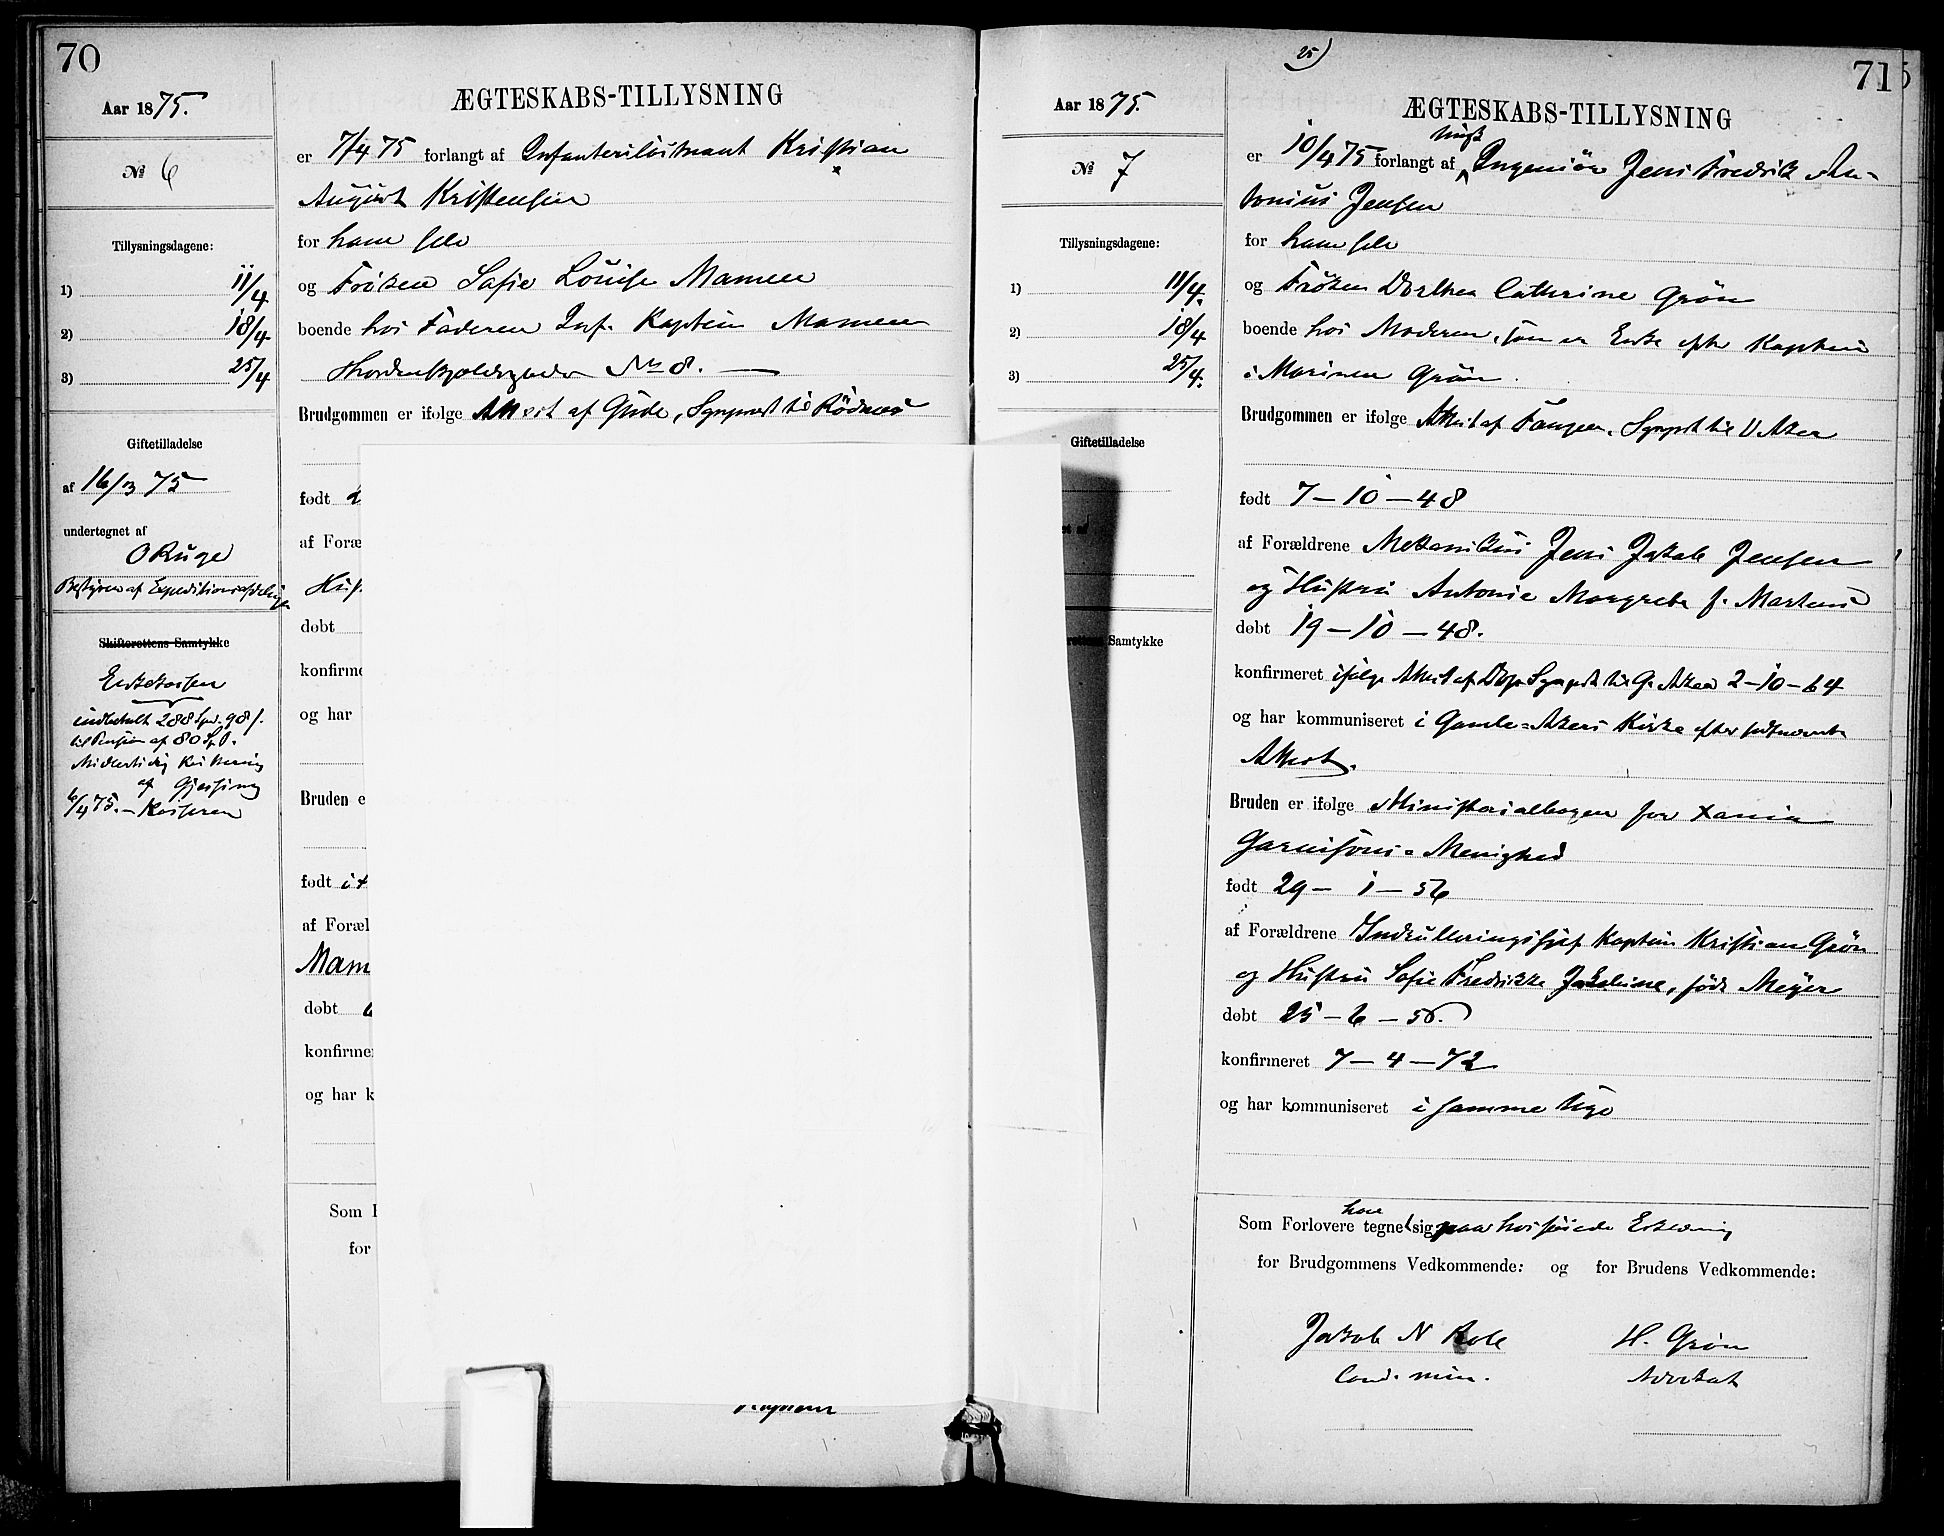 70
Aar 1875.
№ 6
Tillysningsdagene:
1) 11/4
2) 18/4
3) 25/4
Giftetilladelse
af 16/3 75
undertegnet af
O Ruge
Bestyrer af Expeditionsafdelingen
Skifterettens Samtykke
Enkekassen
indbetalt 288 Spd. 98 s.
til Pension af 80 Spd.
Midlertidig Kvittering
af
6/4 75. – Kasserer
ÆGTESKABS-TILLYSNING
er 7/4 75 forlangt af Infanteriløitnant Kristian
August Kristensen
for ham selv
og Frøken Sofie Louise Mamen
boende hos Faderen Inf. Kaptein Mamen
No 8.
Brudgommen er ifølge Attest af Gude, Sognprest til Rödnes
født
af Foræ
Hus
døbt
konfirme
og har
Bruden e
født
af Foræl
Mam
døbt
konfirmer
og har k
Som F
for
25)
715
Aar 1875.
№ 7
Tillysningsdagene:
1) 11/4.
2) 18/4
3) 25/4.
Giftetilladelse
Samtykke
ÆGTESKABS-TILLYSNING
er 10/4 75 forlangt af Ingeniör Jens Fredrik An-
tonius Jensen
for ham selv
og Frøken Dorthea Cathrine Grön
boende hos Moderen, som er Enke efter Kaptein
i Marinen Grön.
Brudgommen er ifølge Attest af Fangen, Sognprest til V Aker
født 7 – 10 – 48
af Forældrene Mekanikus Jens Jakob Jensen
og Hustru Antonie Margrete f. Martens
døbt 19 – 10 – 48.
konfirmeret ifölge Attest af Dop Sognprest til G. Aker 2-10-64
og har kommuniseret i Gamle=Akers Kirke efter sidstnævnte
Attest.
Bruden er ifølge Ministerialbogen for Xania
Garnisons=Menighed
født 29 – 1 – 56
af Forældrene Indrulleringschef Kaptein Kristian Grön
og Hustru Sofie Fredrikke Jakobine, född Meyer
døbt 25 – 6 – 56.
konfirmeret 7 – 4 – 72
og har kommuniseret i samme Uge
have
Som Forlovere tegnet sig paa hosföiede Erklæring
for Brudgommens Vedkommende: og for Brudens Vedkommende:
Jakob N H. Grön
Cand. min. Advokat